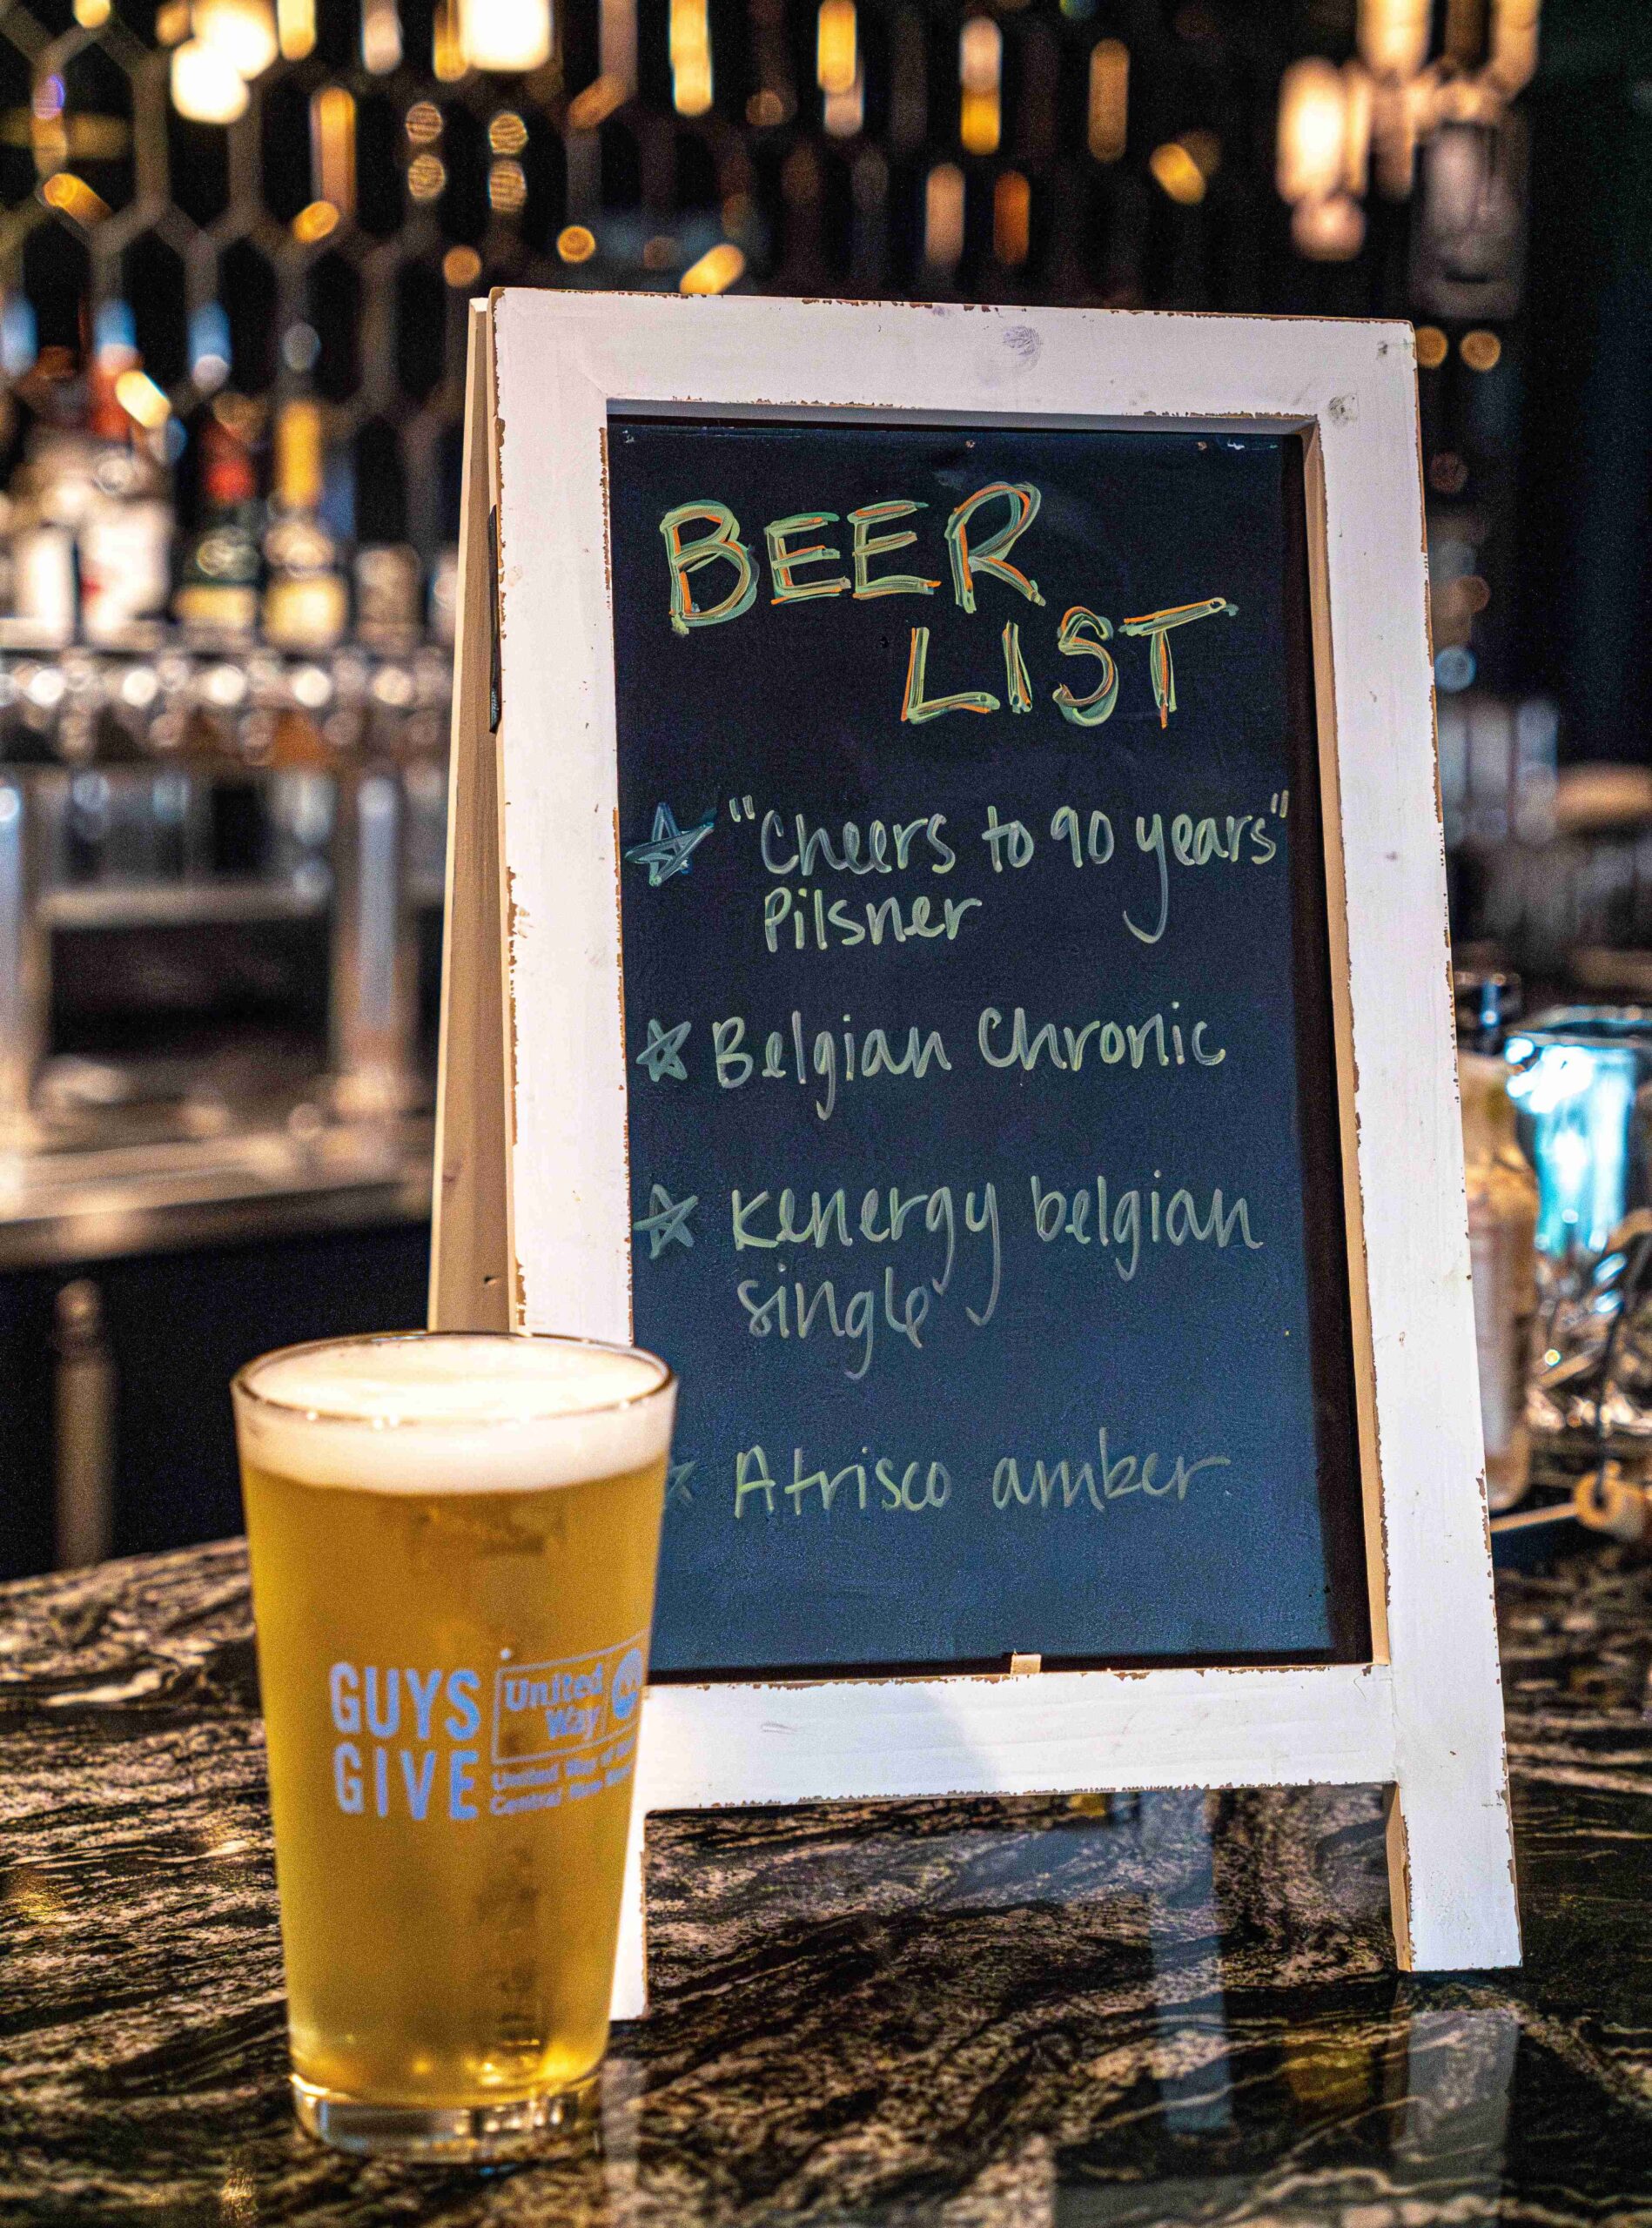 BEER
LIST
"Cheers to 90 years"
Pilsner
Belgian Chronic
Kenergy belgian
single
Atrisco amber
GUYS
GIVE
United
Way
United Way of
Central